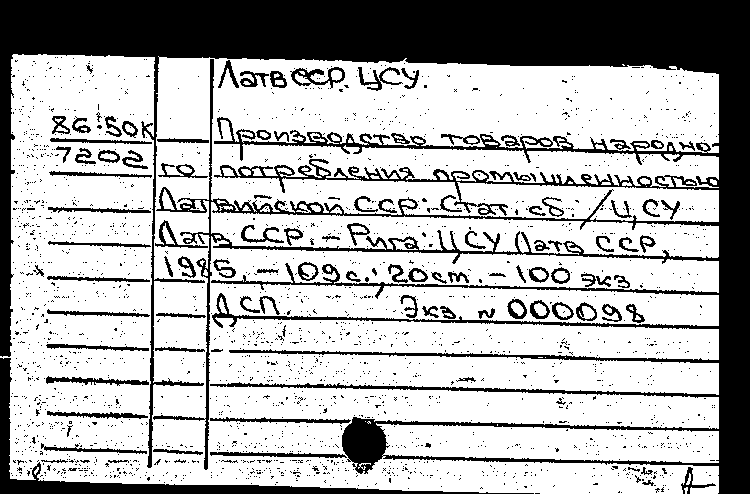 Латв ССР. ЦСУ.
86:50К Производство товаров народно-
7202 го потребления промышленностью
Латвийской ССР: Стат. сб. / ЦСУ
Латв ССР. - Рига: ЦСУ Латв ССР,
1985. - 109 с.; 20 cm. - 100 экз.
ДСП. Экз. № 000098